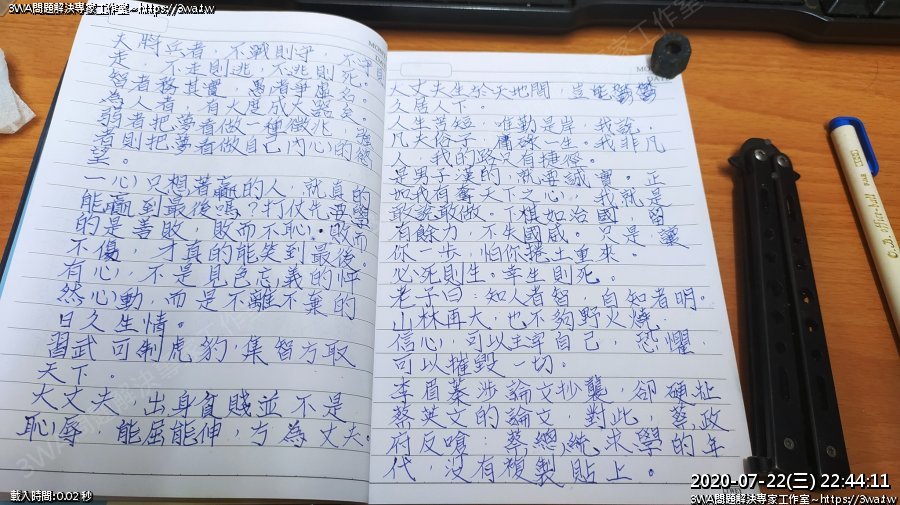 3WA問題解決專家工作室~https://3wa.tw
3WA問題解決專家工作室~https://3wa.tw
夫將兵者，不戰則守，不守則
走，不走則逃，不逃則死。
智者務其實，愚者爭虛名。
為人者，有大度成大器矣。
弱者把夢看做一種徵兆，強
者則把夢看做自己內心的慾
望。
一心只想著贏的人，就真的
能贏到最後嗎？打仗先要學
的是善敗，敗而不恥，敗而
不傷，才真的能笑到最後。
有心，不是見色忘義的怦
然心動，而是不離不棄的
日久生情。
習武可制虎豹，集智方取
天下。
大丈夫，出身貧賤並不是
恥辱，能屈能伸，方為丈夫。
大丈夫生於天地間，豈能鬱鬱
久居人下。
人生苦短，唯勤是岸，我說，
凡夫俗子，庸碌一生。我非凡
人，我的路只有捷徑。
是男子漢的，就要誠實。正
如我有奪天下之心，我就是
敢說敢做。下棋如治國，留
有餘力，不失國威。只是讓
你一步，怕你捲土重來。
必死則生。幸生則死。
老子曰：知人者智，自知者明。
山林再大，也不夠野火燒，
信心，可以主宰自己，恐懼，
可以摧毀一切。
李眉蓁涉論文抄襲，卻硬扯
蔡英文的論文，對此，蔡政
府反嗆：蔡總統求學的年
代，沒有複製貼上。
載入時間:0.02 秒
2020-07-22(三) 22:44:11
3WA問題解決專家工作室~https://3wa.tw